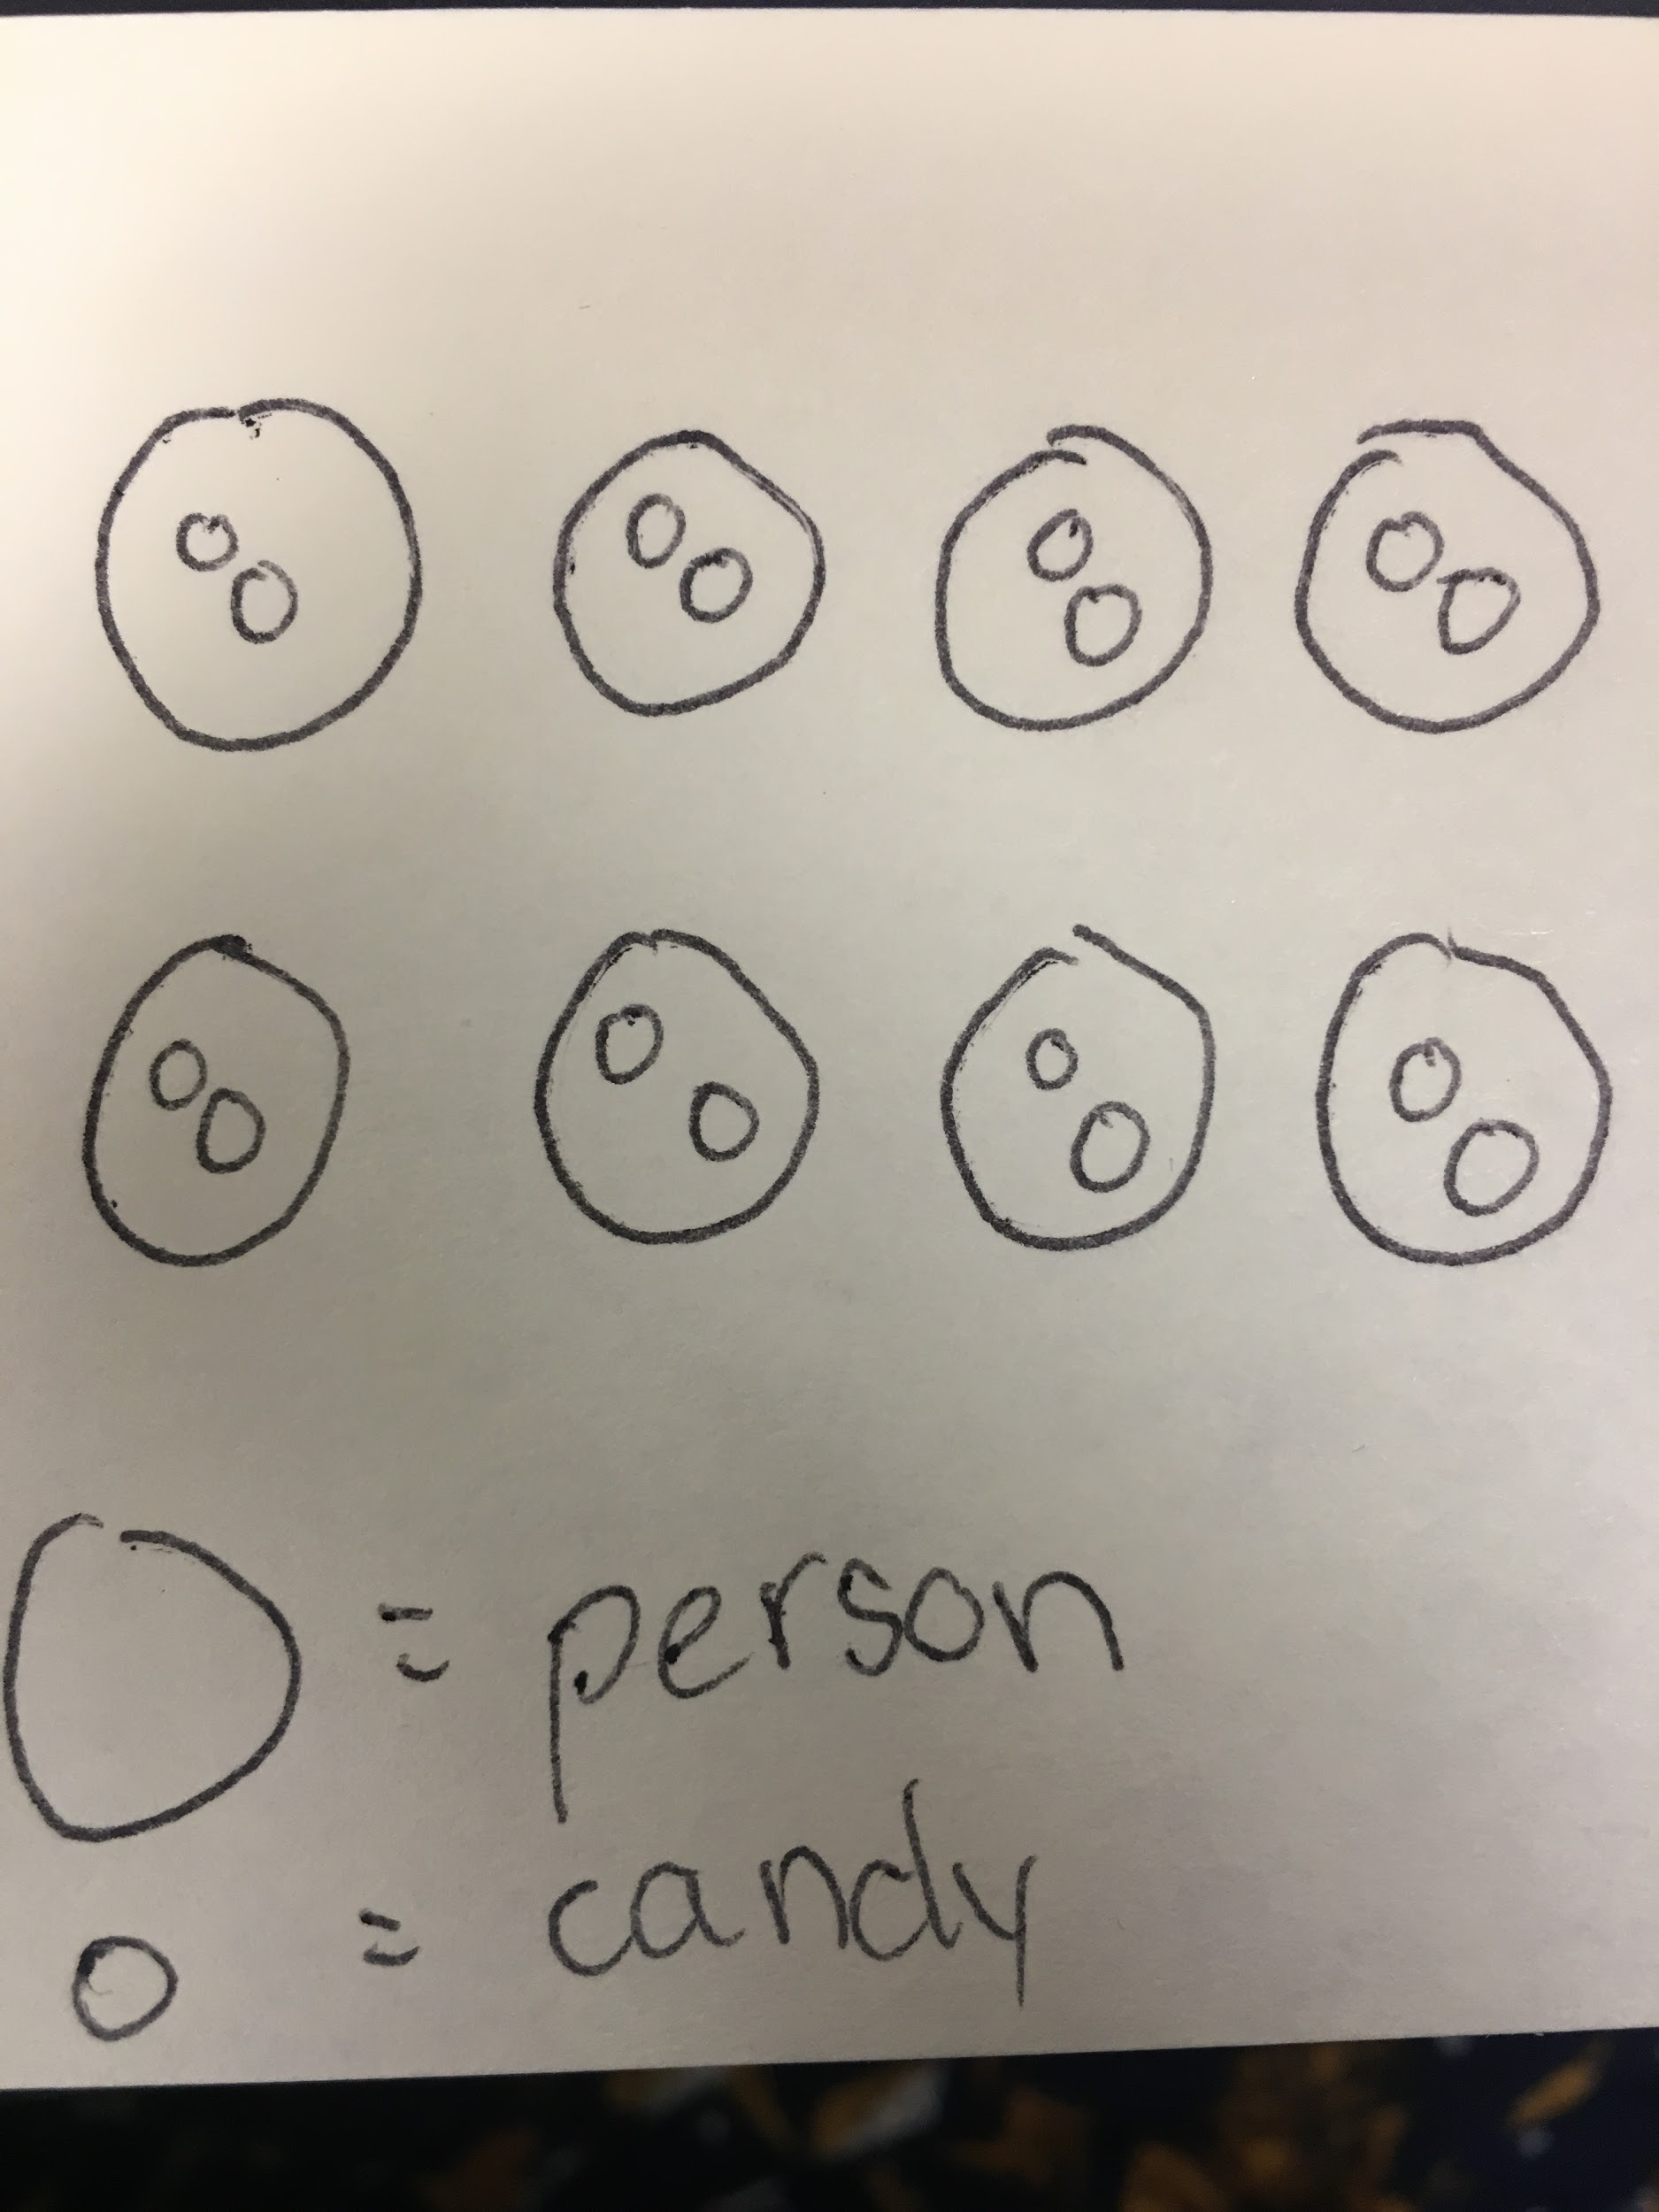 = person
= candy